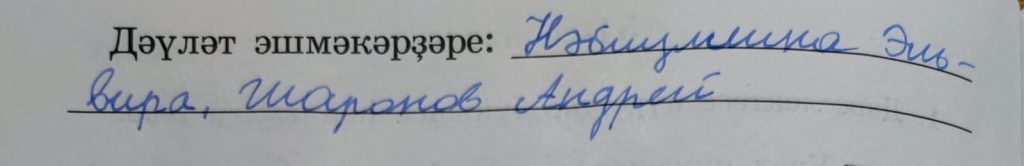 Дәүләт эшмәкәрҙәре: Нәбиуллина Эль-
вира, Шаронов Андрей